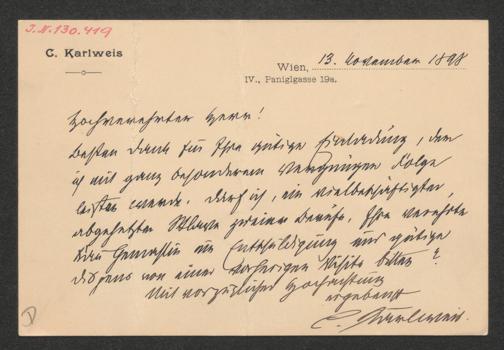 I.N. 130.419
C. Karlweis
Wien, 13. November 1898
IV., Paniglgasse 19a.
Hochverehrter Herr!
Besten Dank für Ihre gütige Einladung, der
ich mit ganz besonderem Vergnügen Folge
leisten werde. Darf ich, ein vielbeschäftigter,
abgehetzter Sklave zweier Berufe, Ihre verehrte
Frau Gemahlin um Entschuldigung und gütige
Dispens von einer vorherigen Visite bitten?
Mit vorzüglicher Hochachtung
ergebenst
C. Karlweis.